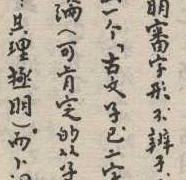 明審字形不辨
一个「古文字已二字
論（可肯定的
其理極明）而